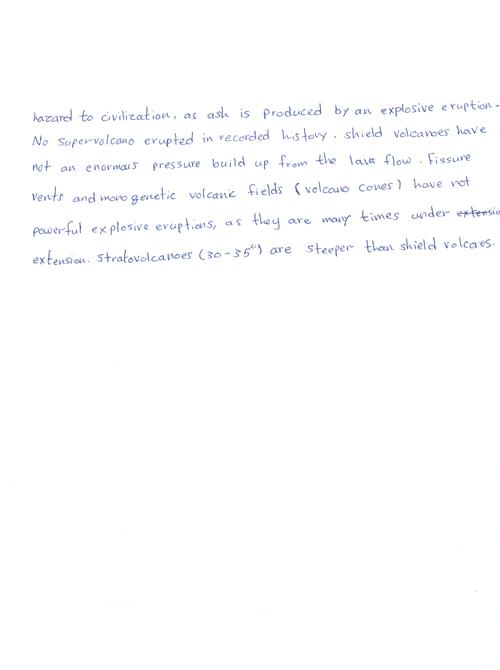 hazard to civilization, as ash is produced by an explosive eruption.
No supervolcano erupted in recorded history. shield volcanoes have
not an enormous pressure build up from the lava flow. Fissure
vents and monogenetic volcanic fields (volcano cones) have not
powerful explosive eruptions, as they are many times under extensio
extension. Stratovolcanoes (30-35°) are steeper than shield volcaes.